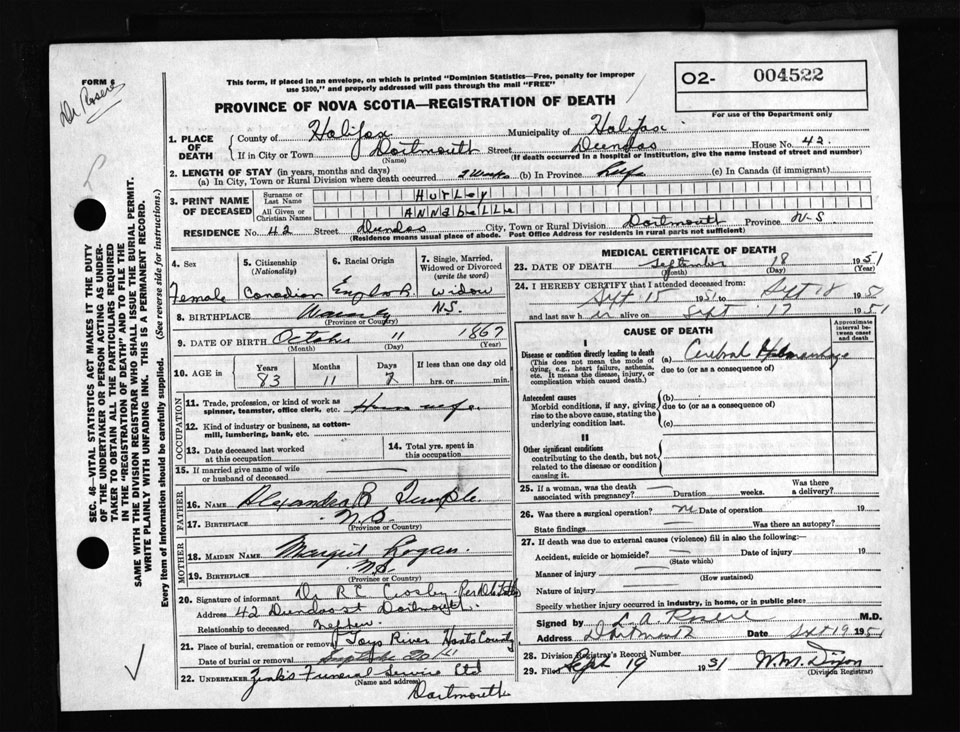 FORM 6
Dr Rosere
This form, if placed in an envelope, on which is printed "Dominion Statistics—Free, penalty for improper
use $300," and properly addressed will pass through the mail "FREE"
PROVINCE OF NOVA SCOTIA—REGISTRATION OF DEATH
O2- 004522
For use of the Department only
SEC. 46—VITAL STATISTICS ACT MAKES IT THE DUTY
OF THE UNDERTAKER OR PERSON ACTING AS UNDER-
TAKER TO OBTAIN ALL THE PARTICULARS REQUIRED
IN THE "REGISTRATION OF DEATH" AND TO FILE THE
SAME WITH THE DIVISION REGISTRAR WHO SHALL ISSUE THE BURIAL PERMIT.
WRITE PLAINLY WITH UNFADING INK. THIS IS A PERMANENT RECORD.
Every item of information should be carefully supplied. (See reverse side for instructions.)
1. PLACE OF DEATH
County of Halifax Municipality of Halifax
If in City or Town Dartmouth Street Dundas House No. 42.
(Name) (If death occurred in a hospital or institution, give the name instead of street and number)
2. LENGTH OF STAY (in years, months and days)
(a) In City, Town or Rural Division where death occurred Weeks (b) In Province Life (c) In Canada (if immigrant)
3. PRINT NAME OF DECEASED
Surname or Last Name HURLEY
All Given or Christian Names ANNABELLE
RESIDENCE No. 42 Street Dundas City, Town or Rural Division Dartmouth Province N-S.
(Residence means usual place of abode. Post Office Address for residents in rural parts not sufficient)
4. Sex Female
5. Citizenship (Nationality) Canadian
6. Racial Origin English
7. Single, Married, Widowed or Divorced (write the word) widow
8. BIRTHPLACE Waverly N.S.
(Province or Country)
9. DATE OF BIRTH October 11 1867
(Month) (Day) (Year)
10. AGE in Years 83 Months 11 Days 7 If less than one day hrs. or min.
OCCUPATION
11. Trade, profession, or kind of work as spinner, teamster, office clerk, etc. Housewife.
12. Kind of industry or business, as cotton-mill, lumbering, bank, etc.
13. Date deceased last worked at this occupation
14. Total yrs. spent in this occupation
15. If married give name of wife or husband of deceased
FATHER
16. NAME Alexandra B Temple.
17. BIRTHPLACE N.S.
(Province or Country)
MOTHER
18. MAIDEN NAME Margret Logan.
19. BIRTHPLACE N.S.
(Province or Country)
20. Signature of informant Dr R C Crosby
Address 42 Dundas st Dartmouth.
Relationship to deceased nephew
21. Place of burial, cremation or removal Jays River Hants County
Date of burial or removal September 20th
22. UNDERTAKER Zink's Funeral Service Ltd
(Name and address)
Dartmouth
MEDICAL CERTIFICATE OF DEATH
23. DATE OF DEATH September 18 1951
(Month) (Day) (Year)
24. I HEREBY CERTIFY that I attended deceased from:
Sept 15 1951 to Sept 18 195
and last saw her alive on Sept. 17 1951
CAUSE OF DEATH
Approximate interval between onset and death
I
Disease or condition directly leading to death (a) Cerebral Hemorrhage
(This does not mean the mode of dying, e.g., heart failure, asthenia, etc. It means the disease, injury, or complication which caused death.)
due to (or as a consequence of)
Antecedent causes (b)
Morbid conditions, if any, giving rise to the above cause, stating the underlying condition last.
due to (or as a consequence of)
(c)
II
Other significant conditions
contributing to the death, but not related to the disease or condition causing it.
25. If a woman, was the death associated with pregnancy? Duration weeks. Was there a delivery?
26. Was there a surgical operation? no Date of operation 19
State findings Was there an autopsy?
27. If death was due to external causes (violence) fill in also the following:—
Accident, suicide or homicide? Date of injury 19
(State which)
Manner of injury
(How sustained)
Nature of injury
Specify whether injury occurred in industry, in home, or in public place
Signed by M.D.
Address Dartmouth Date Sept 19 195
28. Division Registrar's Record Number
29. Filed Sept 19 1951 W.M. Dixon
(Division Registrar)